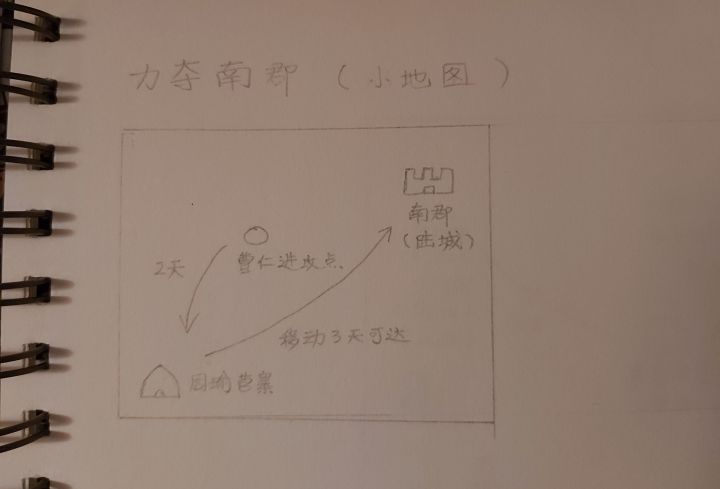 力夺南郡（小地图）
南郡
（陆城）
2天
曹仁进攻点
移动3天可达
周瑜营寨